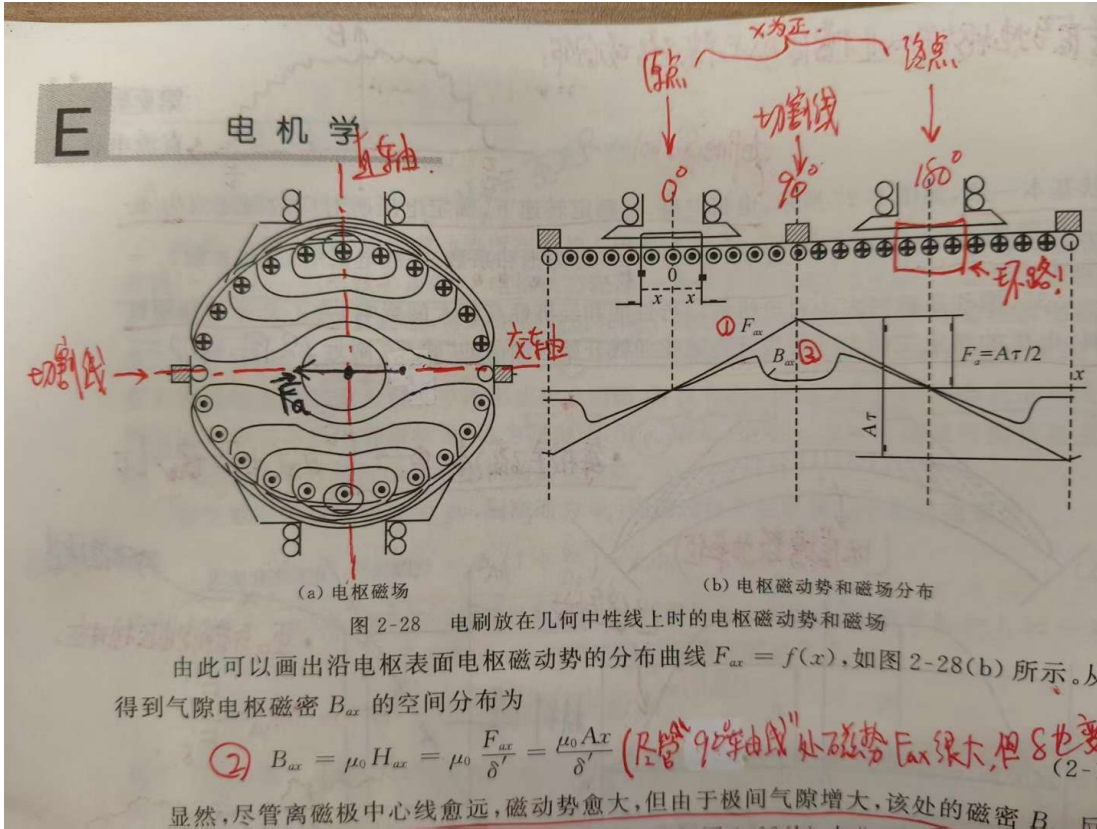 x为正.
原点
终点
切割线
E 电机学
直轴.
0°
90°
180°
0
x x
环路!
① F_ax
B_ax ②
F_a=Aτ/2
x
Aτ
切割线
交轴
F_a
(a) 电枢磁场
(b) 电枢磁动势和磁场分布
图 2-28 电刷放在几何中性线上时的电枢磁动势和磁场
由此可以画出沿电枢表面电枢磁动势的分布曲线 F_ax = f(x),如图 2-28(b) 所示。从
得到气隙电枢磁密 B_ax 的空间分布为
② B_ax = μ₀ H_ax = μ₀ F_ax/δ′ = μ₀ Ax/δ′ (尽管"90°轴线"处磁势 F_ax 很大,但 δ 也变
(2-
显然,尽管离磁极中心线愈远,磁动势愈大,但由于极间气隙增大,该处的磁密 B